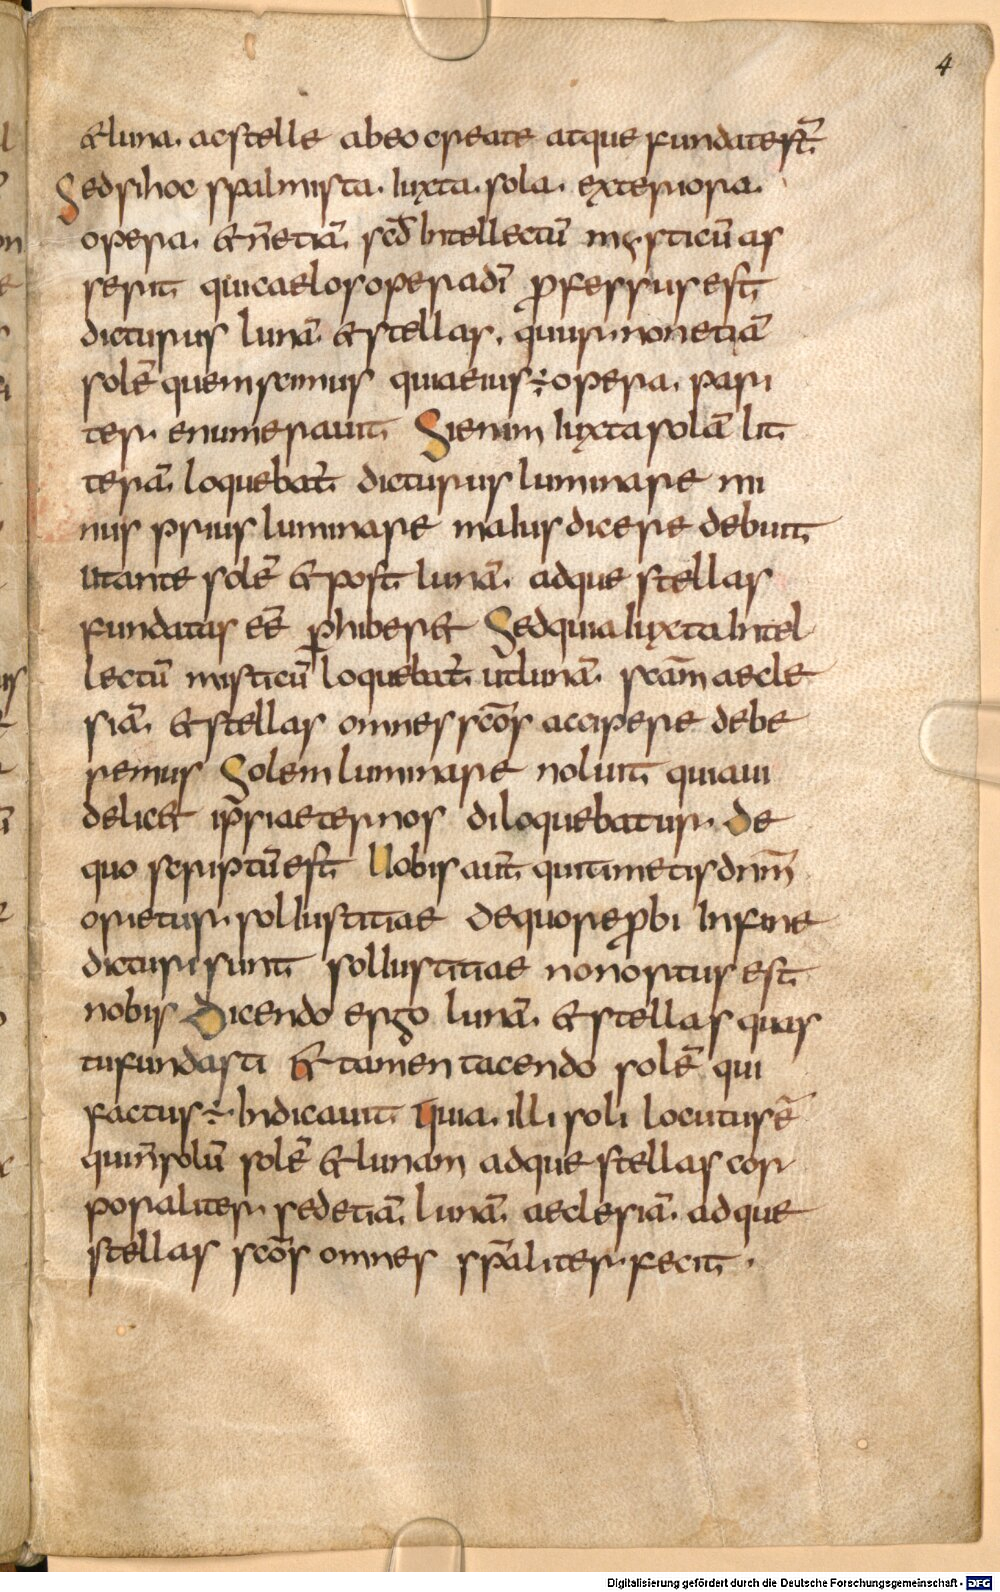 4
&luna. acstelle abeo create atque fundatesr̃.
Sedsihoc spalmista. Iuxta. sola. exteriora.
opera. &n̄etiā. scd̄ Intellectū mysticū as
serit quicaelosoperadī ꝓfessusest
dicturus lunā &stellas. quur nonetiā
solē quemscimus quiaeius÷opera. pari
ter enumerauit Sienim Iuxtasolā lit
terā loquebat̄ dicturus luminare mi
nus prius luminare maius dicere debuit
utante solē &post lunā. adque stellas
fundatas eē ꝓhiber& Sedquia Iuxta Intel
lectū misticū loquebat̄ utlunā. scām aecle
siā. &stellas omnes scōs accipere debe
remus Solem luminare noluit quiaui
delic& ip̄riaeternos diloquebatur. De
quo scriptūest Uobis aut̄ quitimetis dnm̄
orietur sol Iustitiae Dequoreꝓbi Infine
dicturi sunt sol Iustitiae nonortus est
nobis Dicendo ergo lunā. &stellas quas
tufundasti &tamen tacendo solē qui
factus÷ Indicauit quia. illi soli locutusē
quin̄solū solē &lunam adque stellas cor
poraliter sedetiā. lunā. aeclesiā. adque
stellas scōs omnes sp̄aliter. fecit.
Digitalisierung gefördert durch die Deutsche Forschungsgemeinschaft - DFG